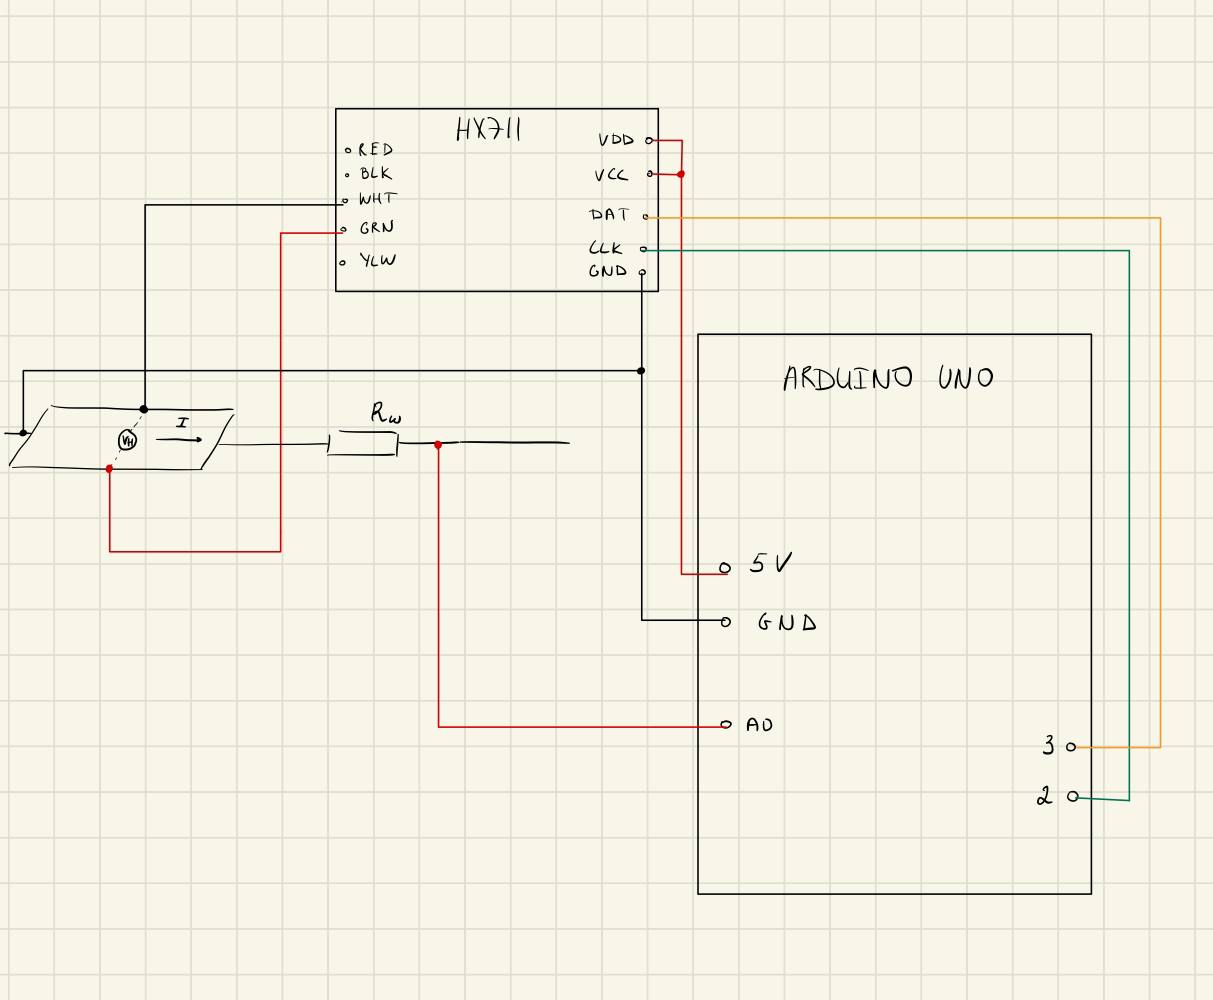 HX711
RED
BLK
WHT
GRN
YLW
VDD
VCC
DAT
CLK
GND
VH
I
Rw
ARDUINO UNO
5V
GND
A0
3
2